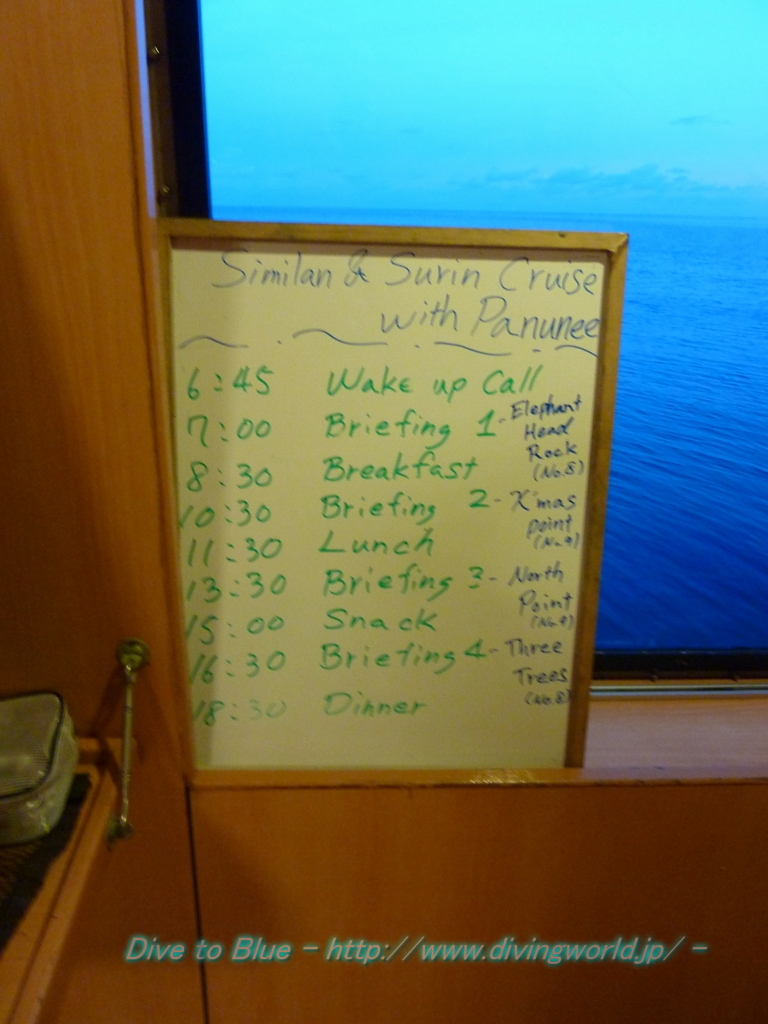 Similan & Surin Cruise
with Panunee
6:45 Wake up Call
7:00 Briefing 1 - Elephant Head Rock (No.8)
8:30 Breakfast
10:30 Briefing 2 - X'mas point (No.9)
11:30 Lunch
13:30 Briefing 3 - North Point (No.9)
15:00 Snack
16:30 Briefing 4 - Three Trees (No.8)
18:30 Dinner
Dive to Blue - http://www.divingworld.jp/ -